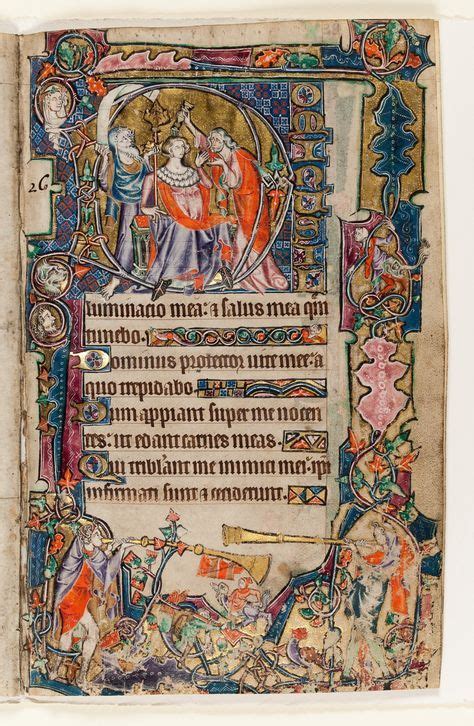 26
D
luminacio mea: & salus mea quē
timebo.
Dominus protector uite mee: a
quo trepidabo
Dum appiant super me nocen
tes: ut edant carnes meas.
Qui tribl̄ant me inimici mei: ip̄i
infirmati sunt & ceciderunt.